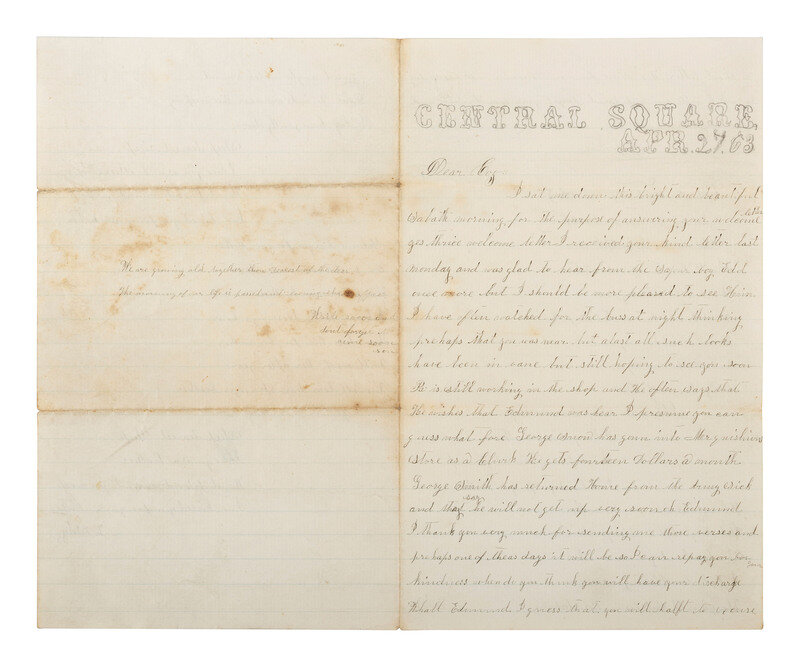 We are growing old together thou dearest of the dear
The morning of our life is passed and evening
Write soon and
dont forget
come soon
soon
CENTRAL SQUARE,
APR. 27, 63
Dear
I sat me down this bright and beautiful
Sabath morning for the purpose of answering your welcome
letter
yes thrice welcome letter I received your kind letter last
monday and was glad to hear from the boy Edd
once more but I should be more pleased to see Him
I have often watched for the buss at night thinking
prehaps that you was near but alast all such looks
have been in vane but still hoping to see you soon
Pa is still working in the shop and He often says that
He wishes that Edmund was hear I presume you can
guess what fore George Snow has gone into
store as a Clurk He gets fourteen Dollars a month
George Smith has returned Home from the Army Sick
and they say he will not get up very soon oh Edmund
I thank you very much for sending me those verses and
prehaps one of theas days it will be so I can repay you for
your
kindness when do you think you will have your discharge
Whall Edmund I guess that you will haft to excuse